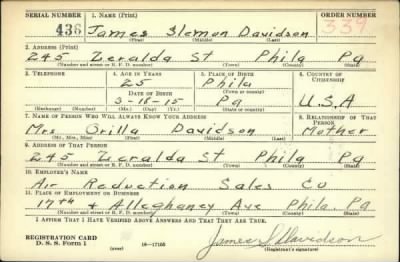 SERIAL NUMBER 1. NAME (Print) ORDER NUMBER
436 James Slemon Davidson 339
(First) (Middle) (Last)
2. ADDRESS (Print)
245 Zeralda St Phila Pa
(Number and street or R. F. D. number) (Town) (County) (State)
3. TELEPHONE 4. AGE IN YEARS 5. PLACE OF BIRTH 6. COUNTRY OF CITIZENSHIP
25 Phila
(Town or county)
DATE OF BIRTH
3-18-15 Pa U.S.A
(Exchange) (Number) (Mo.) (Day) (Yr.) (State or country)
7. NAME OF PERSON WHO WILL ALWAYS KNOW YOUR ADDRESS 8. RELATIONSHIP OF THAT PERSON
Mrs Orilla Davidson Mother
(Mr., Mrs., Miss) (First) (Middle) (Last)
9. ADDRESS OF THAT PERSON
245 Zeralda St Phila Pa
(Number and street or R. F. D. number) (Town) (County) (State)
10. EMPLOYER'S NAME
Air Reduction Sales Co
11. PLACE OF EMPLOYMENT OR BUSINESS
17th & Alleghaney Ave Phila. Pa
(Number and street or R. F. D. number) (Town) (County) (State)
I AFFIRM THAT I HAVE VERIFIED ABOVE ANSWERS AND THAT THEY ARE TRUE.
REGISTRATION CARD
D. S. S. Form 1 (over) 16-17105 James S Davidson
(Registrant's signature)